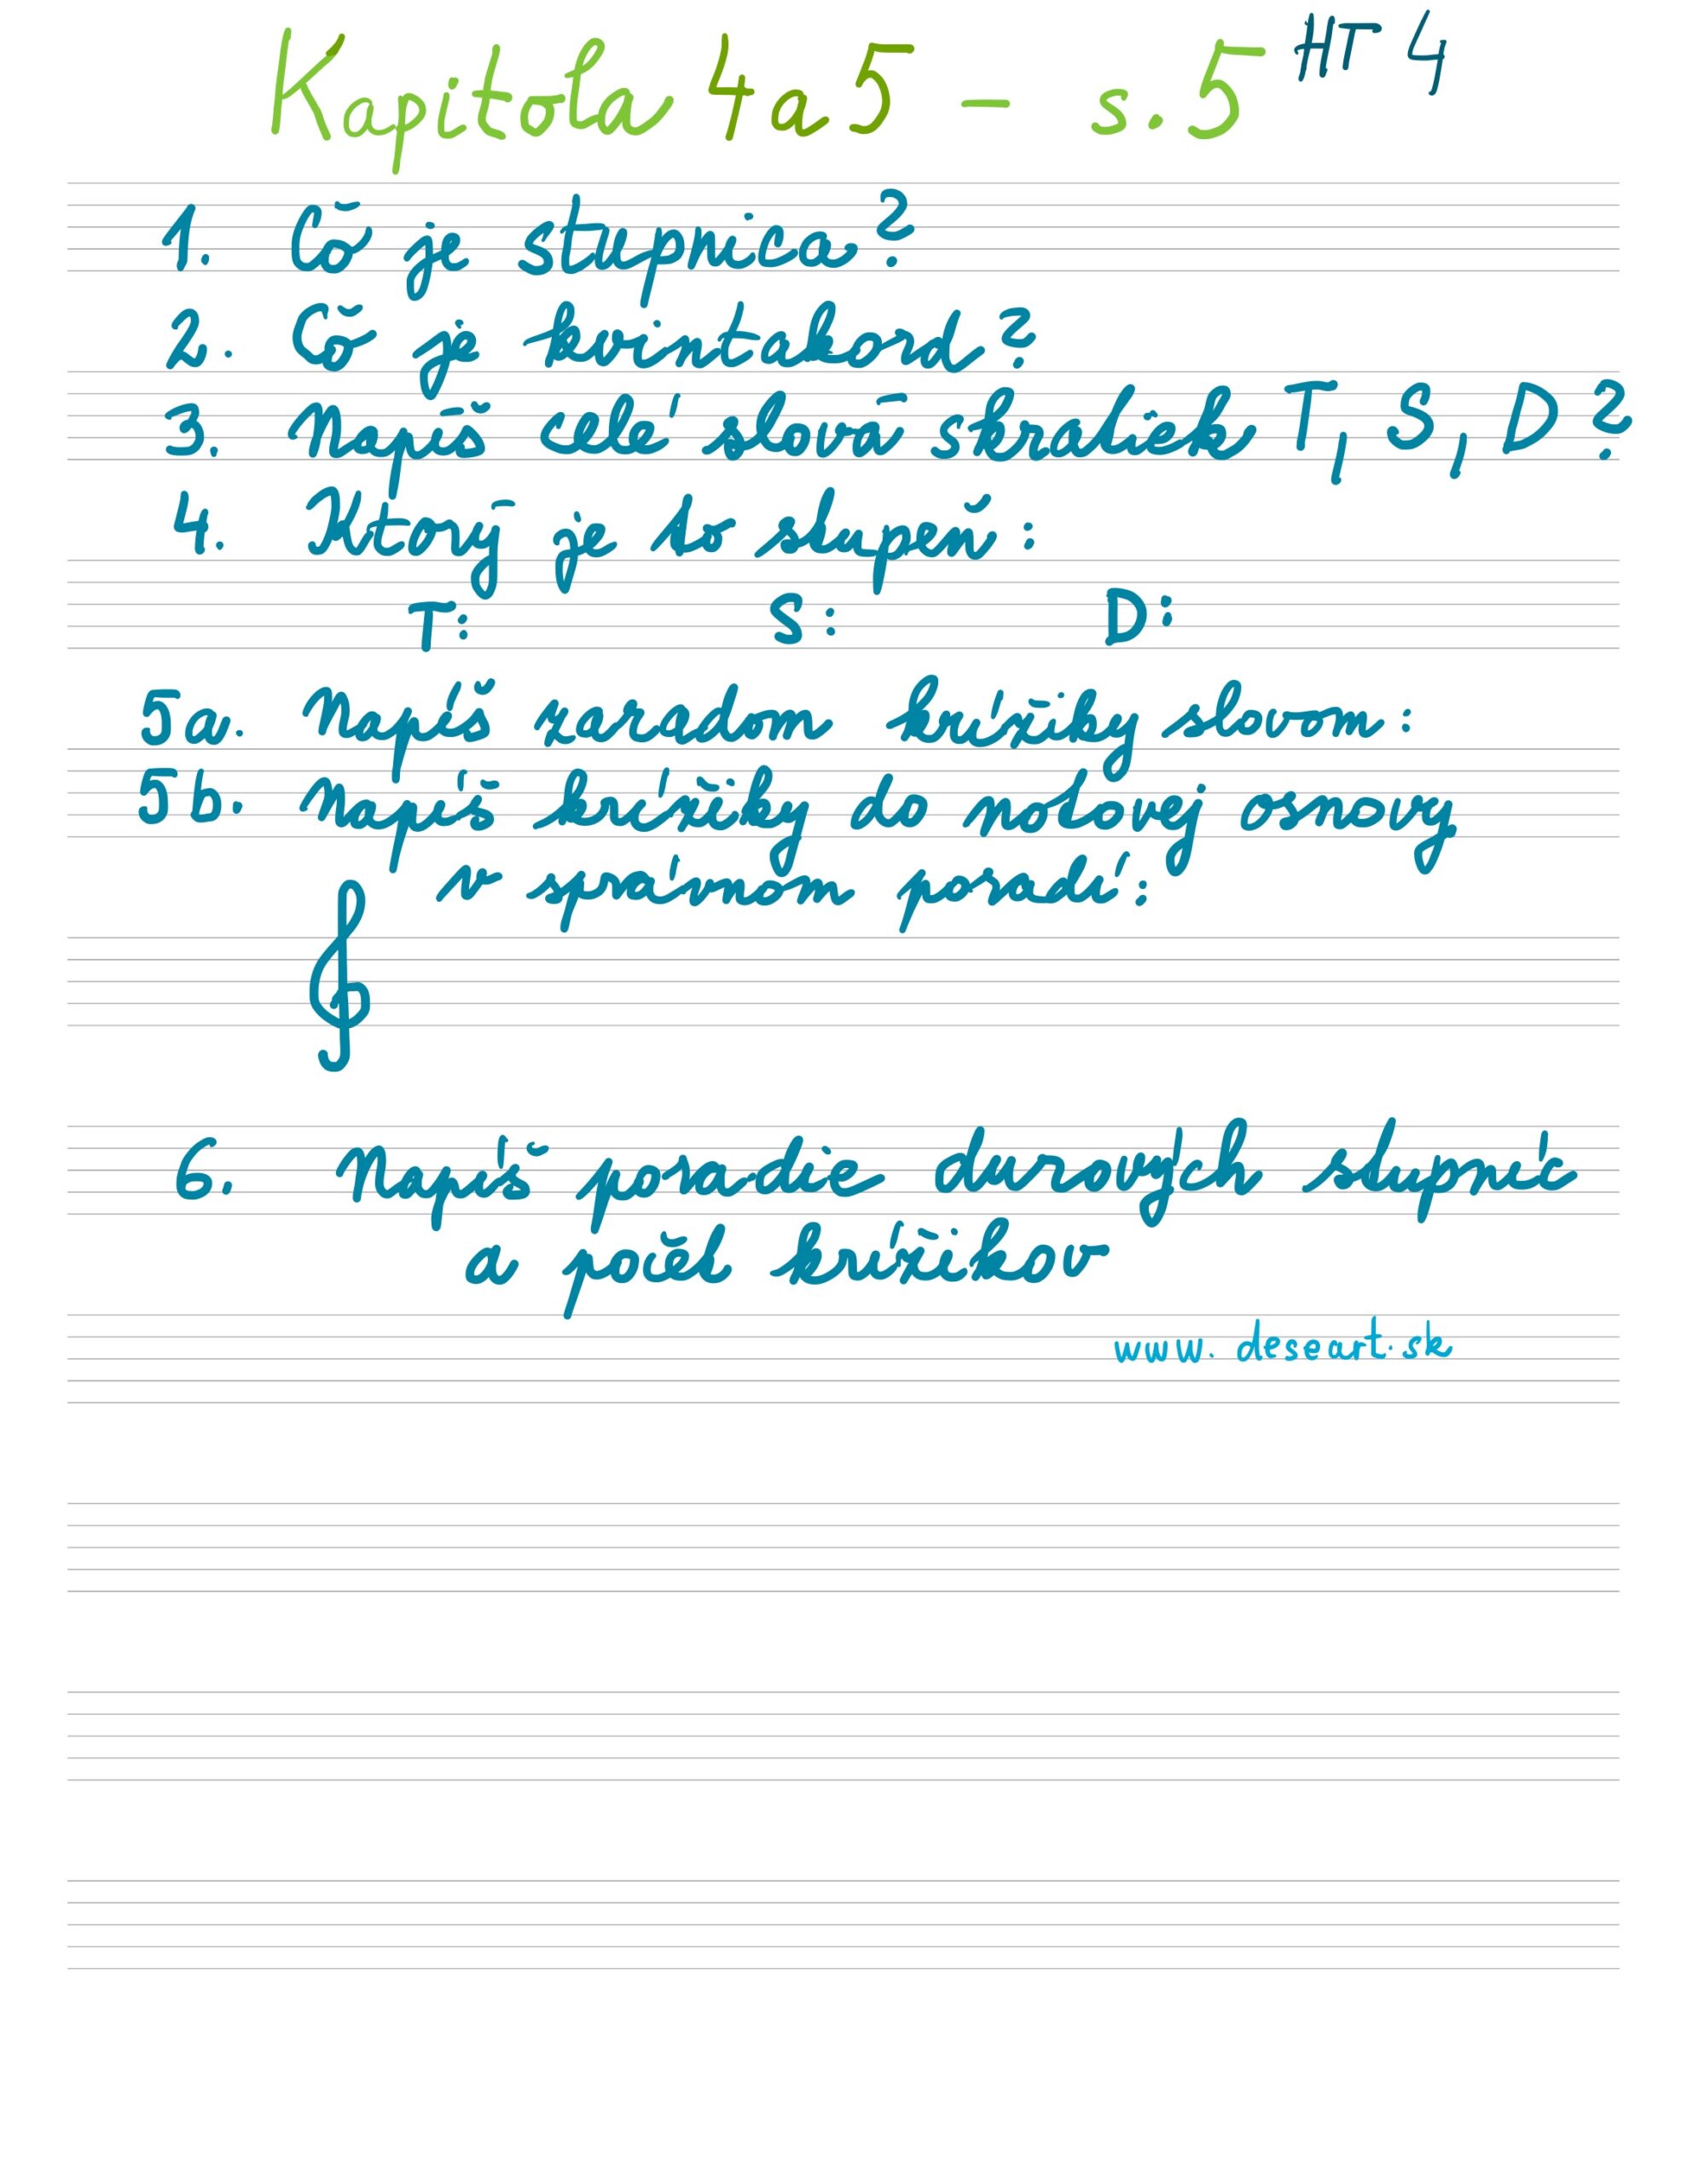 Kapitola 4 a 5 - s. 5 HT 4
1. Čo je stupnica?
2. Čo je kvintakord?
3. Napíš celé slová skratiek T, S, D?
4. Ktorý je to stupeň:
T: S: D:
5a. Napíš zaradom krížiky slovom:
5b. Napíš krížiky do notovej osnovy
v správnom poradí:
6. Napíš poradie durových stupníc
a počet krížikov
www.deseart.sk